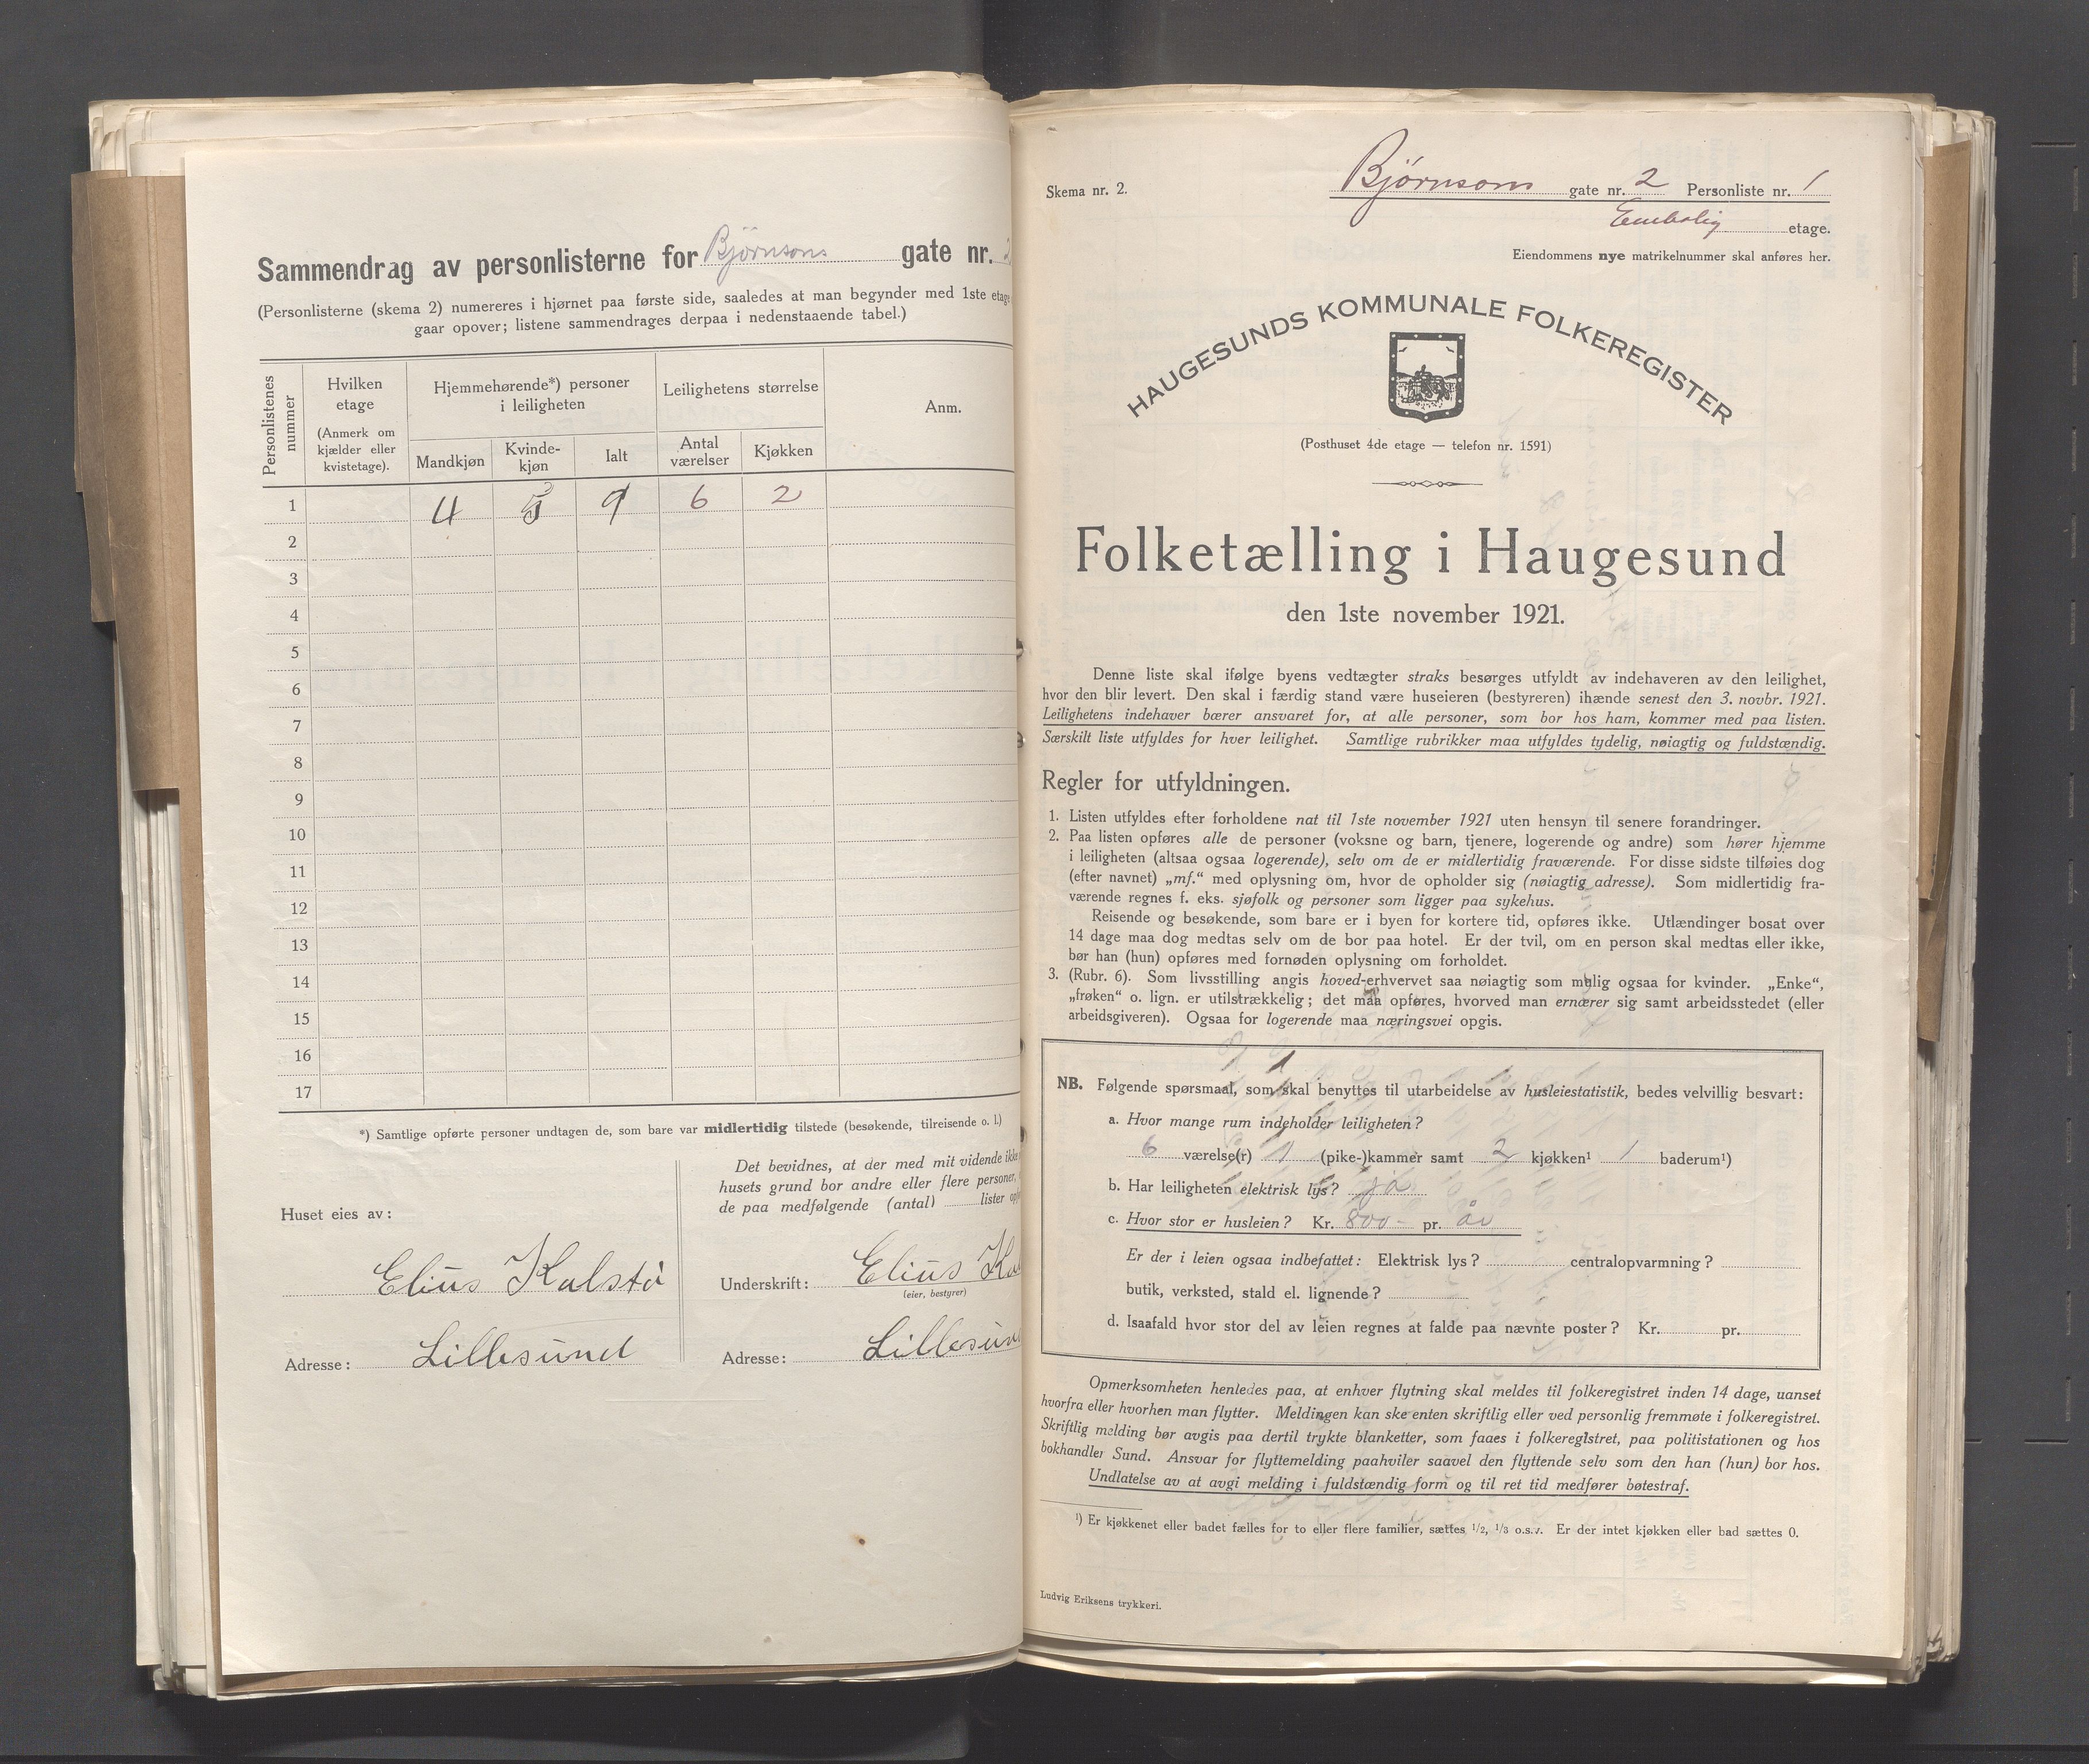 Sammendrag av personlisterne for Bjørnsons gate nr. 2
(Personlisterne (skema 2) numereres i hjørnet paa første side, saaledes at man begynder med 1ste etage
gaar opover; listene sammendrages derpaa i nedenstaaende tabel.)
Personlistenes nummer
Hvilken etage
(Anmerk om kjælder eller kvistetage).
Hjemmehørende*) personer i leiligheten
Mandkjøn
Kvinde-kjøn
Ialt
Leilighetens størrelse
Antal værelser
Kjøkken
Anm.
1 4 5 9 6 2
2
3
4
5
6
7
8
9
10
11
12
13
14
15
16
17
*) Samtlige opførte personer undtagen de, som bare var midlertidig tilstede (besøkende, tilreisende o. l.)
Huset eies av:
Elius Kalstø
Adresse: Lillesund
Det bevidnes, at der med mit vidende ikke
husets grund bor andre eller flere personer,
de paa medfølgende (antal) lister
Underskrift: Elius
(eier, bestyrer)
Adresse: Lillesun
Skema nr. 2.
Bjørnsons gate nr. 2 Personliste nr. 1
Enebolig etage.
Eiendommens nye matrikelnummer skal anføres her.
HAUGESUNDS KOMMUNALE FOLKEREGISTER
(Posthuset 4de etage — telefon nr. 1591)
Folketælling i Haugesund
den 1ste november 1921.
Denne liste skal ifølge byens vedtægter straks besørges utfyldt av indehaveren av den leilighet,
hvor den blir levert. Den skal i færdig stand være huseieren (bestyreren) ihænde senest den 3. novbr. 1921.
Leilighetens indehaver bærer ansvaret for, at alle personer, som bor hos ham, kommer med paa listen.
Særskilt liste utfyldes for hver leilighet. Samtlige rubrikker maa utfyldes tydelig, nøiagtig og fuldstændig.
Regler for utfyldningen.
1. Listen utfyldes efter forholdene nat til 1ste november 1921 uten hensyn til senere forandringer.
2. Paa listen opføres alle de personer (voksne og barn, tjenere, logerende og andre) som hører hjemme
i leiligheten (altsaa ogsaa logerende), selv om de er midlertidig fraværende. For disse sidste tilføies dog
(efter navnet) „mf.“ med oplysning om, hvor de opholder sig (nøiagtig adresse). Som midlertidig fra-
værende regnes f. eks. sjøfolk og personer som ligger paa sykehus.
Reisende og besøkende, som bare er i byen for kortere tid, opføres ikke. Utlændinger bosat over
14 dage maa dog medtas selv om de bor paa hotel. Er der tvil, om en person skal medtas eller ikke,
bør han (hun) opføres med fornøden oplysning om forholdet.
3. (Rubr. 6). Som livsstilling angis hoved-erhvervet saa nøiagtig som mulig ogsaa for kvinder. „Enke“,
„frøken“ o. lign. er utilstrækkelig; det maa opføres, hvorved man ernærer sig samt arbeidsstedet (eller
arbeidsgiveren). Ogsaa for logerende maa næringsvei opgis.
NB. Følgende spørsmaal, som skal benyttes til utarbeidelse av husleiestatistik, bedes velvillig besvart:
a. Hvor mange rum indeholder leiligheten?
6 værelse(r) 1 (pike-)kammer samt 2 kjøkken¹ 1 baderum¹)
b. Har leiligheten elektrisk lys? ja
c. Hvor stor er husleien? Kr. 800- pr. år
Er der i leien ogsaa indbefattet: Elektrisk lys? centralopvarmning?
butik, verksted, stald el. lignende?
d. Isaafald hvor stor del av leien regnes at falde paa nævnte poster? Kr. pr.
Opmerksomheten henledes paa, at enhver flytning skal meldes til folkeregistret inden 14 dage, uanset
hvorfra eller hvorhen man flytter. Meldingen kan ske enten skriftlig eller ved personlig fremmøte i folkeregistret.
Skriftlig melding bør avgis paa dertil trykte blanketter, som faaes i folkeregistret, paa politistationen og hos
bokhandler Sund. Ansvar for flyttemelding paahviler saavel den flyttende selv som den han (hun) bor hos.
Undlatelse av at avgi melding i fuldstændig form og til ret tid medfører bøtestraf.
¹) Er kjøkkenet eller badet fælles for to eller flere familier, sættes 1/2, 1/3 o.s.v. Er der intet kjøkken eller bad sættes 0.
Ludvig Eriksens trykkeri.